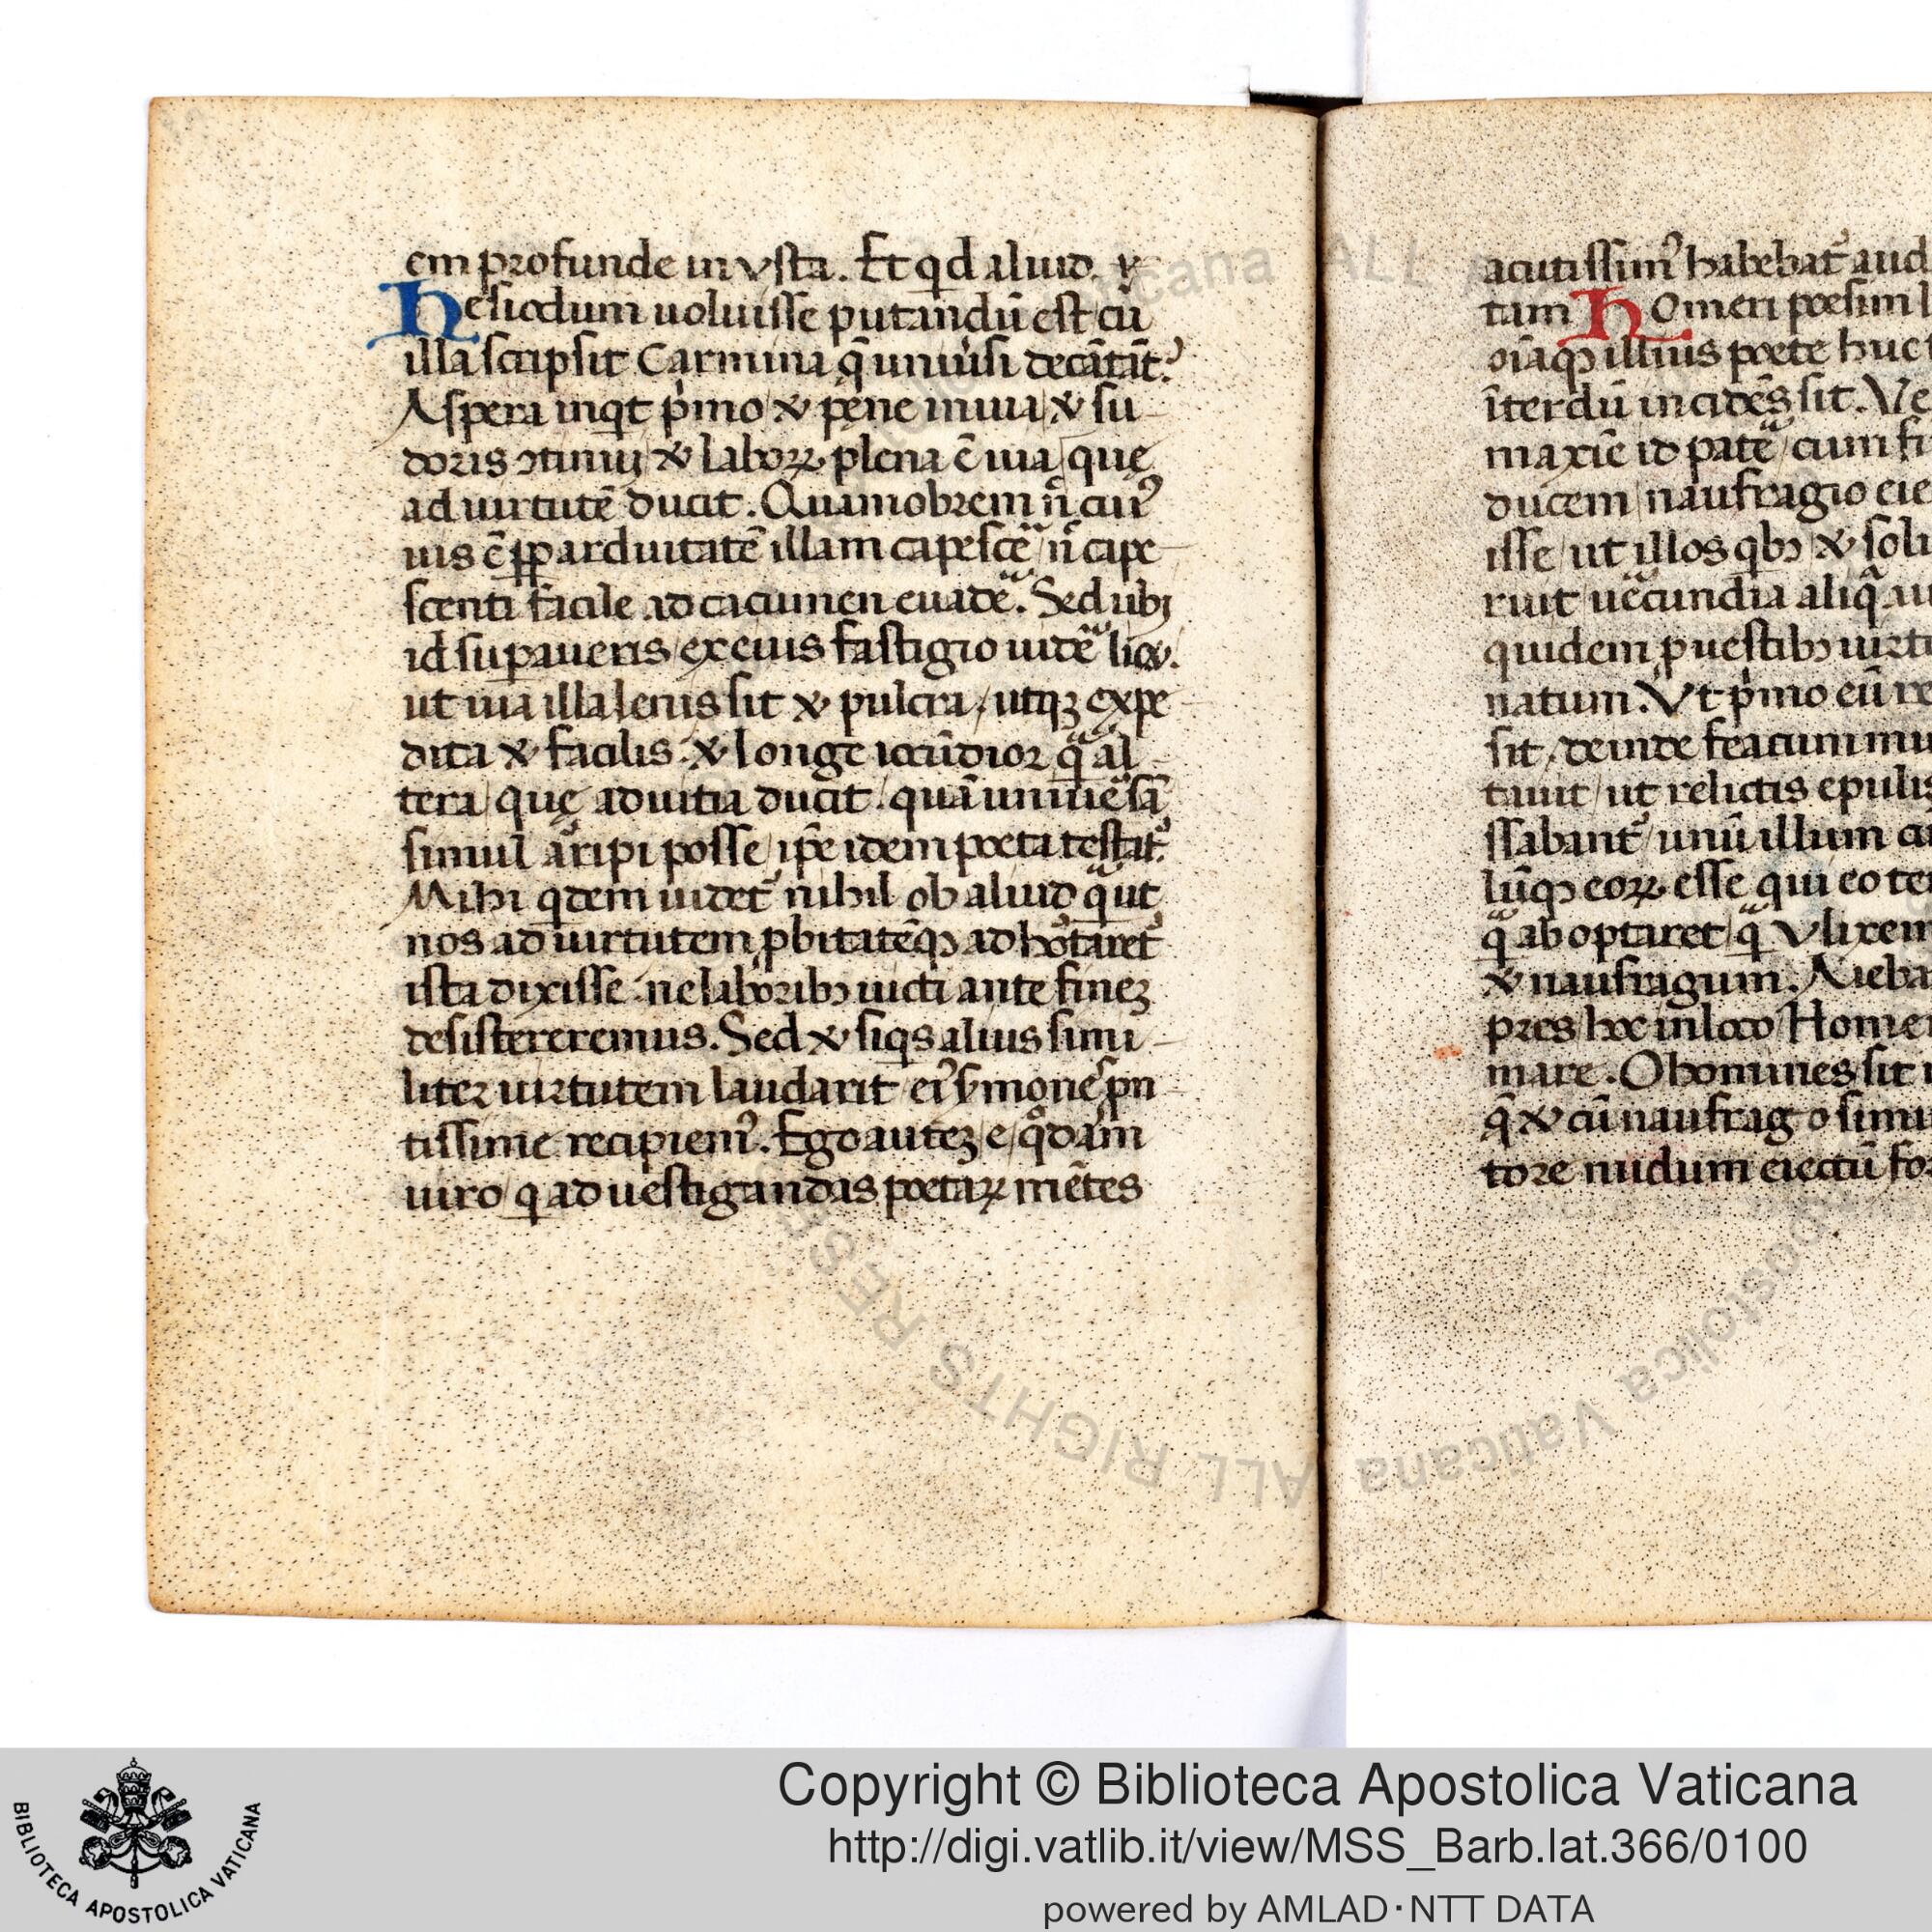 em profunde inusta. Et qd aliud &
Hesiodum uoluisse putandū est cū
illa scripsit Carmina q̄ uniuͥsi decātāt?
Aspera inqͥt pͥmo & pęne inuia & su
doris ꝯtinuij & laboꝝ plena ē uia que
ad uirtutē ducit. Quamobrem nͦ cuiꝰ
uis ē ꝓp arduitatē illam capesce nͦ cape
scenti facile ad cacumen euade. Sed ubi
id supaueris ex eius fastigio uide licꝫ.
ut uia illa lenis sit & pulcra utqꝫ expe
dita & facilis & longe iocūdior qͣ al
tera que ad uitia ducit. quā uniuesā
simul aripi posse ipe idem poeta testat.
Mihi qdem uidet nihil ob aliud qͣ ut
nos ad uirtutem ꝓbitatēqꝫ ad hortaret
ista dixisse ne laboribꝫ uicti ante fineꝫ
desistereremus. Sed & siqͥs alius simi
liter uirtutem laudarit eiꝰ smonē pn
tissime recipiemꝰ. Ego auteꝫ e qͦdam
uiro q ad uestigandas poetaꝝ mētes
acutissimꝰ habebat aud
tam Homeri poesim l
oīaqꝫ illius poete huc t
īterdū incidēs sit. Ve
maxīe id pate cum si
ducem naufragio eie
isse ut illos qbꝫ & soli
ruit uecundia aliqͣ au
quidem p uestibꝫ uirtu
natum. Ut pͥmo eū re
sit. deinde feacum mu
tauit ut relictis epulis
ssabant unū illum cu
lūqꝫ eoꝝ esse qui eo te
qͣ ab optaret qͣ Ulixem
& naufragum. Aieba
pres hoc in loco Home
mare. O homines sit
q̄ & cū naufrago simu
tore nudum eiectū fo
Copyright © Biblioteca Apostolica Vaticana
http://digi.vatlib.it/view/MSS_Barb.lat.366/0100
powered by AMLAD·NTT DATA
BIBLIOTECA APOSTOLICA VATICANA